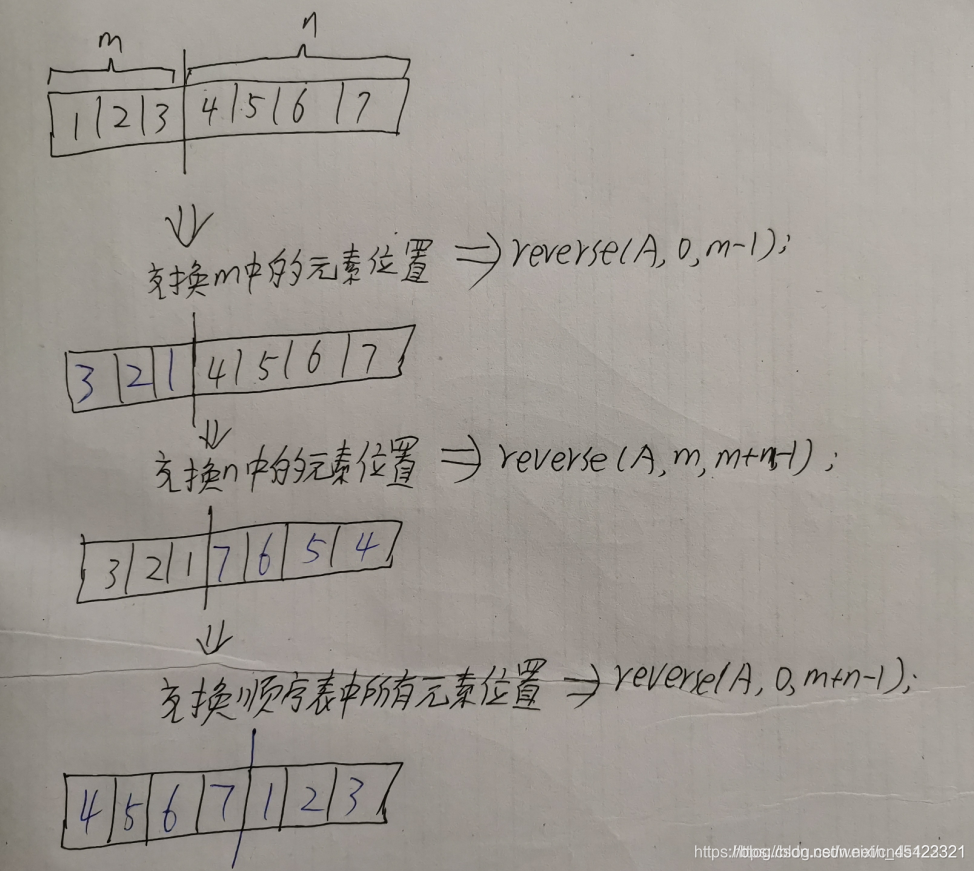 m n
1 2 3 4 5 6 7
交换m中的元素位置 ⇒ reverse(A, 0, m-1);
3 2 1 4 5 6 7
交换n中的元素位置 ⇒ reverse(A, m, m+n-1);
3 2 1 7 6 5 4
交换顺序表中所有元素位置 ⇒ reverse(A, 0, m+n-1);
4 5 6 7 1 2 3